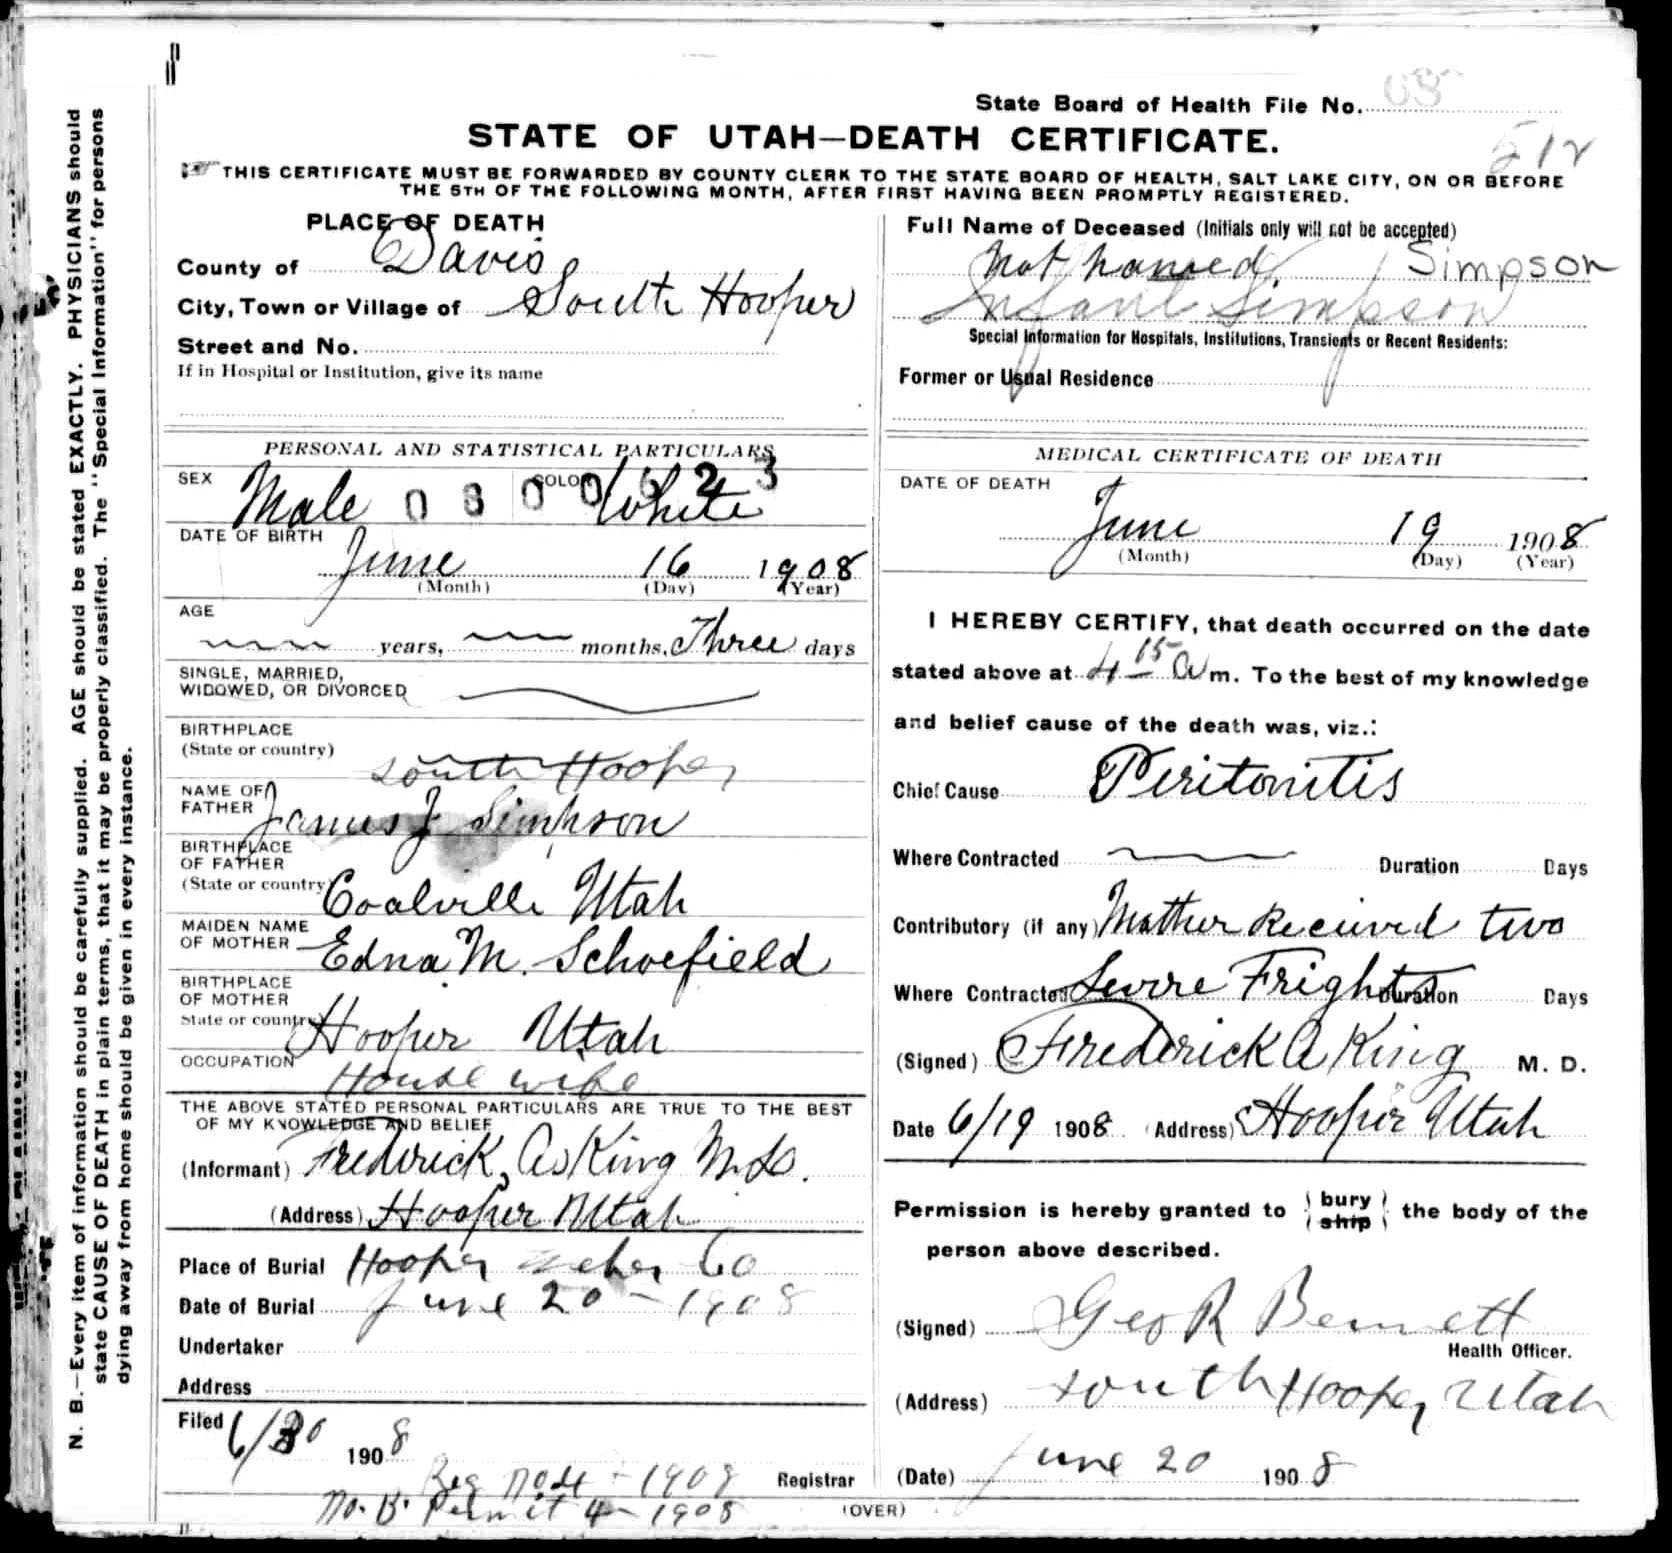 State Board of Health File No. 68
512
STATE OF UTAH—DEATH CERTIFICATE.
THIS CERTIFICATE MUST BE FORWARDED BY COUNTY CLERK TO THE STATE BOARD OF HEALTH, SALT LAKE CITY, ON OR BEFORE
THE 5TH OF THE FOLLOWING MONTH, AFTER FIRST HAVING BEEN PROMPTLY REGISTERED.
N. B.—Every item of information should be carefully supplied. AGE should be stated EXACTLY. PHYSICIANS should
state CAUSE OF DEATH in plain terms, that it may be properly classified. The "Special Information" for persons
dying away from home should be given in every instance.
PLACE OF DEATH
County of Davis
City, Town or Village of South Hooper
Street and No.
If in Hospital or Institution, give its name
PERSONAL AND STATISTICAL PARTICULARS
SEX Male COLOR White
0 8 0 0 6 2 3
DATE OF BIRTH
June 16 1908
(Month) (Day) (Year)
AGE
years, months, Three days
SINGLE, MARRIED,
WIDOWED, OR DIVORCED
BIRTHPLACE
(State or country) South Hooper
NAME OF
FATHER James J Simpson
BIRTHPLACE
OF FATHER
(State or country) Coalville Utah
MAIDEN NAME
OF MOTHER Edna M. Schoefield
BIRTHPLACE
OF MOTHER
State or country Hooper Utah
OCCUPATION House wife
THE ABOVE STATED PERSONAL PARTICULARS ARE TRUE TO THE BEST
OF MY KNOWLEDGE AND BELIEF
(Informant) Frederick A King M.D.
(Address) Hooper Utah
Place of Burial Hooper Weber Co
Date of Burial June 20 - 1908
Undertaker
Address
Filed 6/30 1908
Reg No 4 - 1908 Registrar
No. B. Permit 4 - 1908
Full Name of Deceased (Initials only will not be accepted)
Not named Simpson
Infant Simpson
Special Information for Hospitals, Institutions, Transients or Recent Residents:
Former or Usual Residence
MEDICAL CERTIFICATE OF DEATH
DATE OF DEATH
June 19 1908
(Month) (Day) (Year)
I HEREBY CERTIFY, that death occurred on the date
stated above at 4 15 A m. To the best of my knowledge
and belief cause of the death was, viz.:
Chief Cause Peritonitis
Where Contracted Duration Days
Contributory (if any) Mother Recieved two
Where Contracted Severe Frights Duration Days
(Signed) Frederick A King M. D.
Date 6/19 1908 (Address) Hooper Utah
Permission is hereby granted to bury ship the body of the
person above described.
(Signed) Geo R Bennett
Health Officer.
(Address) South Hooper Utah
(Date) June 20 1908
(OVER)